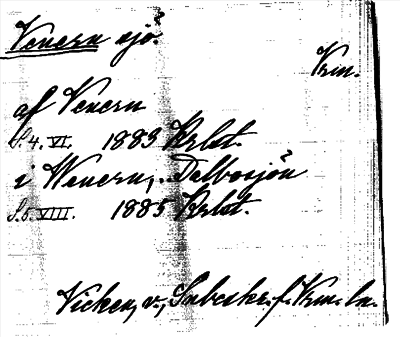 Venern sjö.
Vrm.
af Venern
S. 4. VI. 1883 Krlst.
i Wenern, Dalbosjön
S. 5. VIII. 1885 Krlst.
Vicken, v., Subskr. f. Vrm. ln.